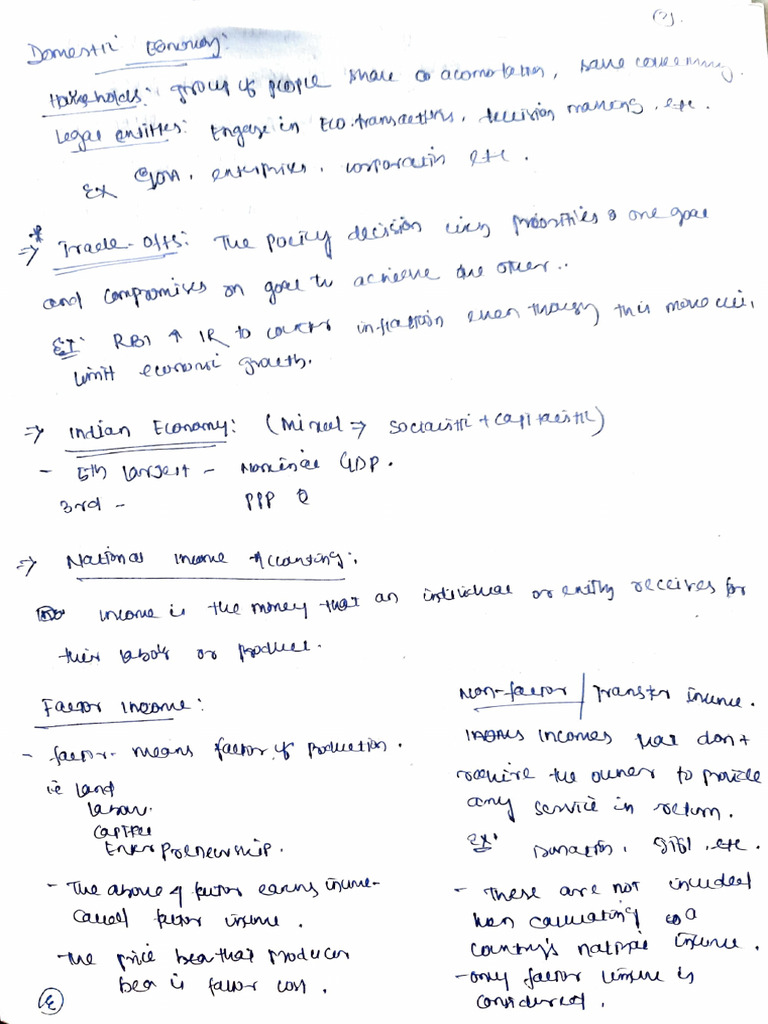 (3).
Domestic Economy:
Households: group of people share an acomotation, same concerning.
Legal entities: Engage in Eco. transactions, decision making, etc.
EX Govn, enterprises, corporation etc.
* ⇒ Trade-offs: The policy decision priorities one goal
and compromises on goal to achieve the other..
EX: RBI ↑ IR to counter inflation even though this move will
limit economic growth.
⇒ Indian Economy: (Mixed ⇒ Socialistic + Capitalistic)
- 5th largest - Nominal GDP.
3rd - PPP
⇒ National Income Accounting:
income is the money that an individual or entity receives for
their labour or produce.
Factor Income:
- factor- means factor of production.
ie land
labour.
capital
Enterpreneurship.
- The above 4 factor earns income
called factor income.
- The price that producer
bear is factor cost.
Non-factor / Transfer income.
incomes that don't
require the owner to provide
any service in return.
EX: Donation, gift, etc.
- These are not included
when calculating a
country's national income.
- only factor income is
considered.